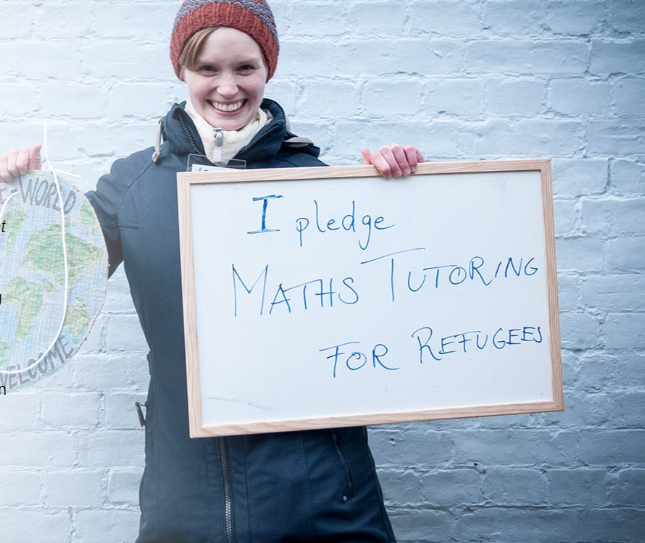 WORLD
WELCOME
I pledge
MATHS TUTORING
FOR REFUGEES